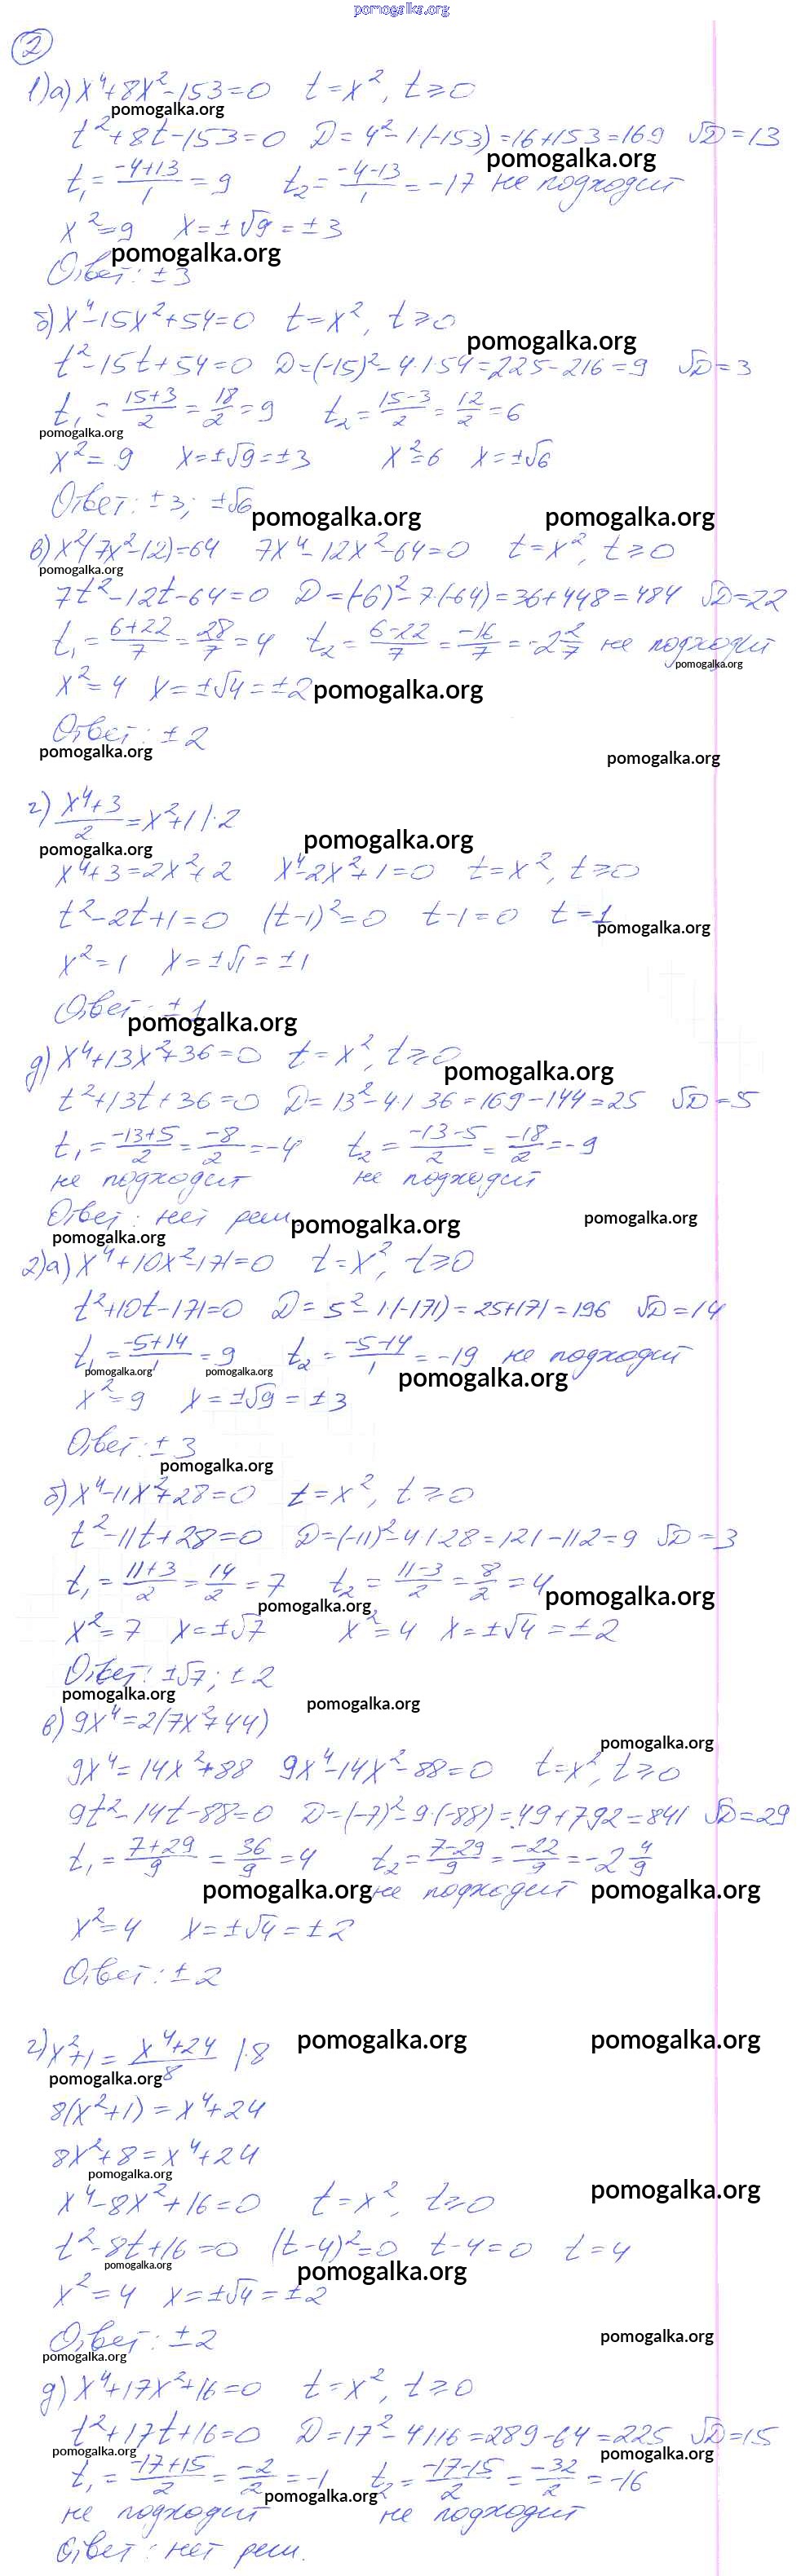 pomogalka.org
2
1) а) x⁴+8x²-153=0 t=x², t≥0
pomogalka.org
t²+8t-153=0 D=4²-1·(-153)=16+153=169 √D=13
pomogalka.org
t₁=(-4+13)/1=9 t₂=(-4-13)/1=-17 не подходит
x²=9 x=±√9=±3
pomogalka.org
Ответ: ±3
б) x⁴-15x²+54=0 t=x², t≥0
pomogalka.org
t²-15t+54=0 D=(-15)²-4·1·54=225-216=9 √D=3
t₁=(15+3)/2=18/2=9 t₂=(15-3)/2=12/2=6
pomogalka.org
x²=9 x=±√9=±3 x²=6 x=±√6
Ответ: ±3; ±√6
pomogalka.org pomogalka.org
в) x²(7x²-12)=64 7x⁴-12x²-64=0 t=x², t≥0
pomogalka.org
7t²-12t-64=0 D=(-6)²-7·(-64)=36+448=484 √D=22
t₁=(6+22)/7=28/7=4 t₂=(6-22)/7=-16/7=-2 2/7 не подходит
pomogalka.org
x²=4 x=±√4=±2 pomogalka.org
Ответ: ±2
pomogalka.org pomogalka.org
г) (x⁴+3)/2=x²+1 |·2
pomogalka.org pomogalka.org
x⁴+3=2x²+2 x⁴-2x²+1=0 t=x², t≥0
t²-2t+1=0 (t-1)²=0 t-1=0 t=1
pomogalka.org
x²=1 x=±√1=±1
Ответ: ±1
pomogalka.org
д) x⁴+13x²+36=0 t=x², t≥0
pomogalka.org
t²+13t+36=0 D=13²-4·1·36=169-144=25 √D=5
t₁=(-13+5)/2=-8/2=-4 t₂=(-13-5)/2=-18/2=-9
не подходит не подходит
Ответ: нет реш. pomogalka.org pomogalka.org
pomogalka.org
2) а) x⁴+10x²-171=0 t=x², t≥0
t²+10t-171=0 D=5²-1·(-171)=25+171=196 √D=14
t₁=(-5+14)/1=9 t₂=(-5-14)/1=-19 не подходит
pomogalka.org pomogalka.org pomogalka.org
x²=9 x=±√9=±3
Ответ: ±3
pomogalka.org
б) x⁴-11x²+28=0 t=x², t≥0
t²-11t+28=0 D=(-11)²-4·1·28=121-112=9 √D=3
t₁=(11+3)/2=14/2=7 t₂=(11-3)/2=8/2=4
pomogalka.org pomogalka.org
x²=7 x=±√7 x²=4 x=±√4=±2
Ответ: ±√7; ±2
pomogalka.org pomogalka.org
в) 9x⁴=2(7x²+44)
pomogalka.org
9x⁴=14x²+88 9x⁴-14x²-88=0 t=x², t≥0
9t²-14t-88=0 D=(-7)²-9·(-88)=49+792=841 √D=29
t₁=(7+29)/9=36/9=4 t₂=(7-29)/9=-22/9=-2 4/9
pomogalka.org не подходит pomogalka.org
x²=4 x=±√4=±2
Ответ: ±2
г) x²+1=(x⁴+24)/8 |·8 pomogalka.org pomogalka.org
pomogalka.org
8(x²+1)=x⁴+24
8x²+8=x⁴+24
pomogalka.org
x⁴-8x²+16=0 t=x², t≥0 pomogalka.org
t²-8t+16=0 (t-4)²=0 t-4=0 t=4
pomogalka.org pomogalka.org
x²=4 x=±√4=±2
Ответ: ±2 pomogalka.org
pomogalka.org
д) x⁴+17x²+16=0 t=x², t≥0
t²+17t+16=0 D=17²-4·1·16=289-64=225 √D=15
pomogalka.org pomogalka.org
t₁=(-17+15)/2=-2/2=-1 t₂=(-17-15)/2=-32/2=-16
pomogalka.org
не подходит не подходит
Ответ: нет реш.